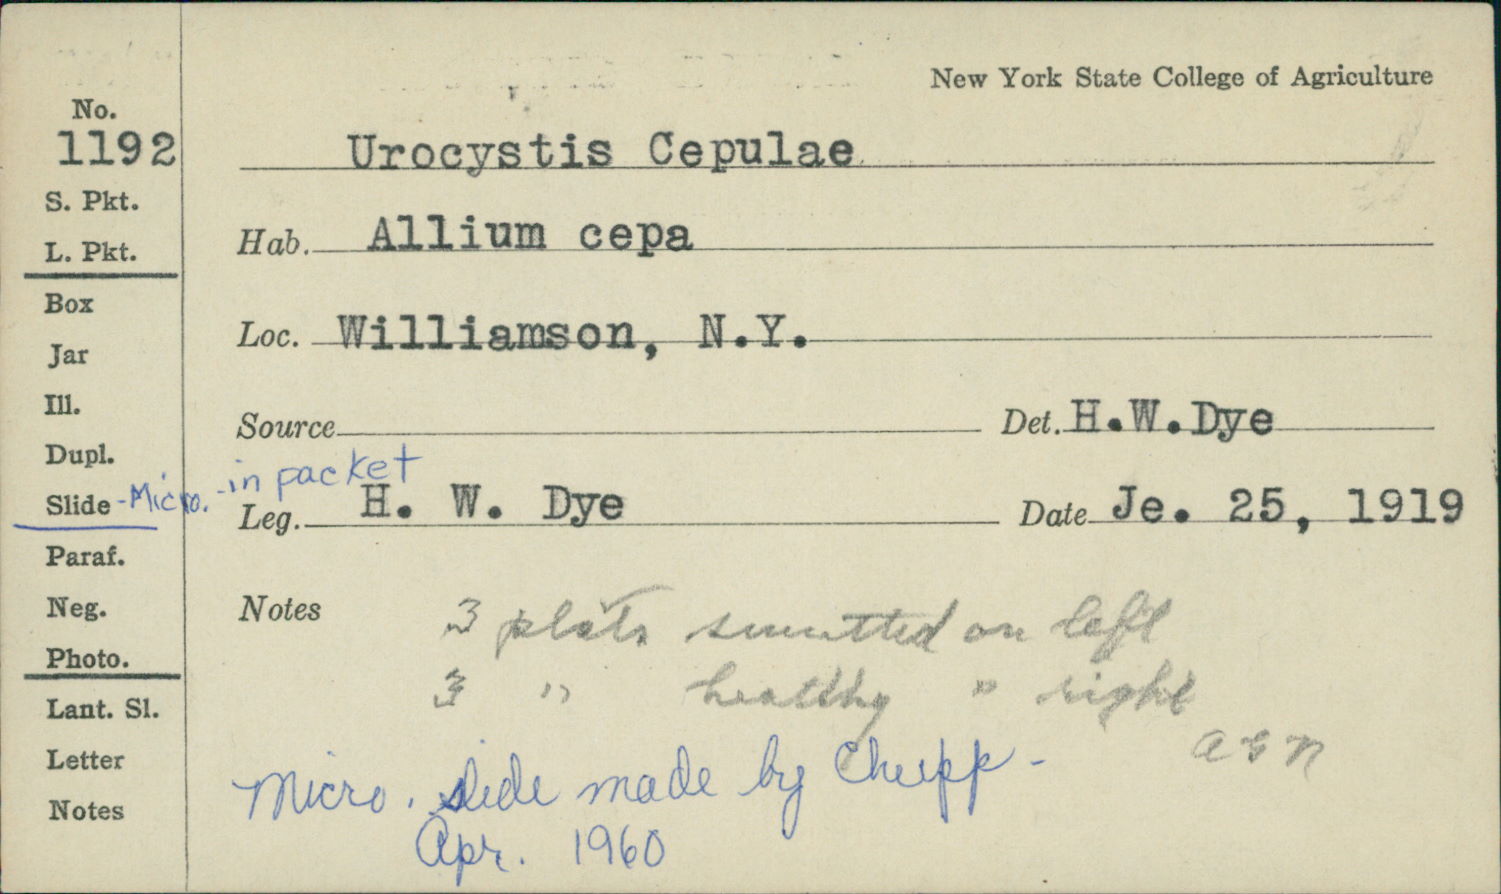 New York State College of Agriculture
No.
1192
Urocystis Cepulae
S. Pkt.
L. Pkt.
Hab. Allium cepa
Box
Loc. Williamson, N.Y.
Jar
Ill.
Source
Det. H.W.Dye
Dupl.
Slide - Micro. - in packet
Leg. H. W. Dye
Date Je. 25, 1919
Paraf.
Neg.
Notes
3 plats smutted on left
Photo.
3 " healthy " right
Lant. Sl.
Letter
Micro. slide made by Chupp -
Notes
Apr. 1960